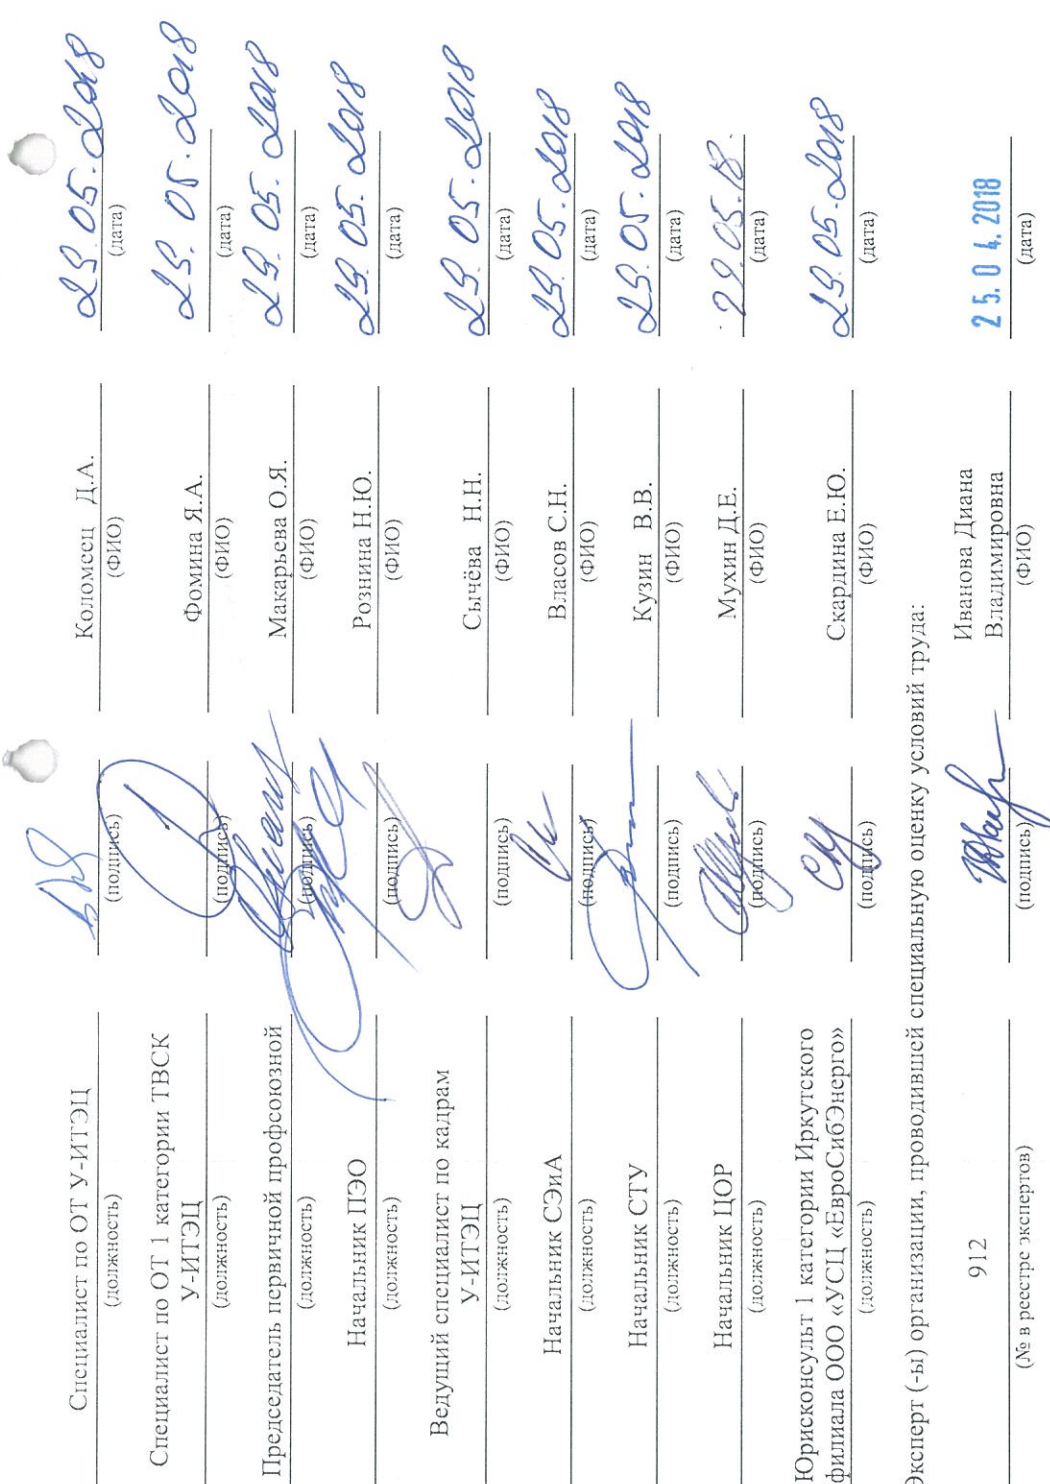 Специалист по ОТ У-ИТЭЦ Коломеец Д.А. 29.05.2018
(должность) (подпись) (ФИО) (дата)
Специалист по ОТ 1 категории ТВСК
У-ИТЭЦ Фомина Я.А. 29.05.2018
(должность) (подпись) (ФИО) (дата)
Председатель первичной профсоюзной Макарьева О.Я. 29.05.2018
(должность) (подпись) (ФИО) (дата)
Начальник ПЭО Рознина Н.Ю. 29.05.2018
(должность) (подпись) (ФИО) (дата)
Ведущий специалист по кадрам
У-ИТЭЦ Сычёва Н.Н. 29.05.2018
(должность) (подпись) (ФИО) (дата)
Начальник СЭиА Власов С.Н. 29.05.2018
(должность) (подпись) (ФИО) (дата)
Начальник СТУ Кузин В.В. 29.05.2018
(должность) (подпись) (ФИО) (дата)
Начальник ЦОР Мухин Д.Е. 29.05.18.
(должность) (подпись) (ФИО) (дата)
Юрисконсульт 1 категории Иркутского
филиала ООО «УСЦ «ЕвроСибЭнерго» Скардина Е.Ю. 29.05.2018
(должность) (подпись) (ФИО) (дата)
Эксперт (-ы) организации, проводившей специальную оценку условий труда:
912 Иванова Диана
Владимировна 25.04.2018
(№ в реестре экспертов) (подпись) (ФИО) (дата)